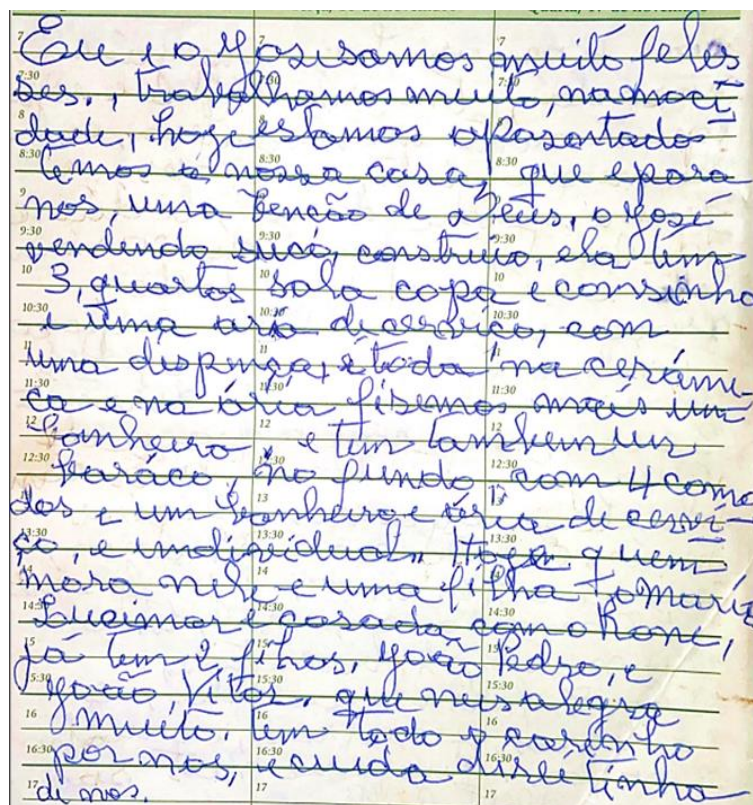 Eu e o José somos muito feles
ses., trabalhamos muito, na moci
dade, hoje estamos aposentado
temos a nossa casa, que e para
nos, uma benção de Deus, o José
vendendo suco, construio, ela tem
3, quartos sala copa e consinha
e uma ara de cerviço, com
uma dispença, é toda na cerâmi
ca e na área fisemos mais um
banheiro, e tem tambem um
baraco, no fundo com 4 como
dos e um banheiro e área de cervi-
ço, e individual. Hoje quem
mora nele e uma filha a Maria
Lucimar e casada, com o Rone,
já tem 2 filhos, João Pedro, e
João Vitor, que nus alegra
muito. tem todo o carinho
por nos, e cuida direitinho
di nos.